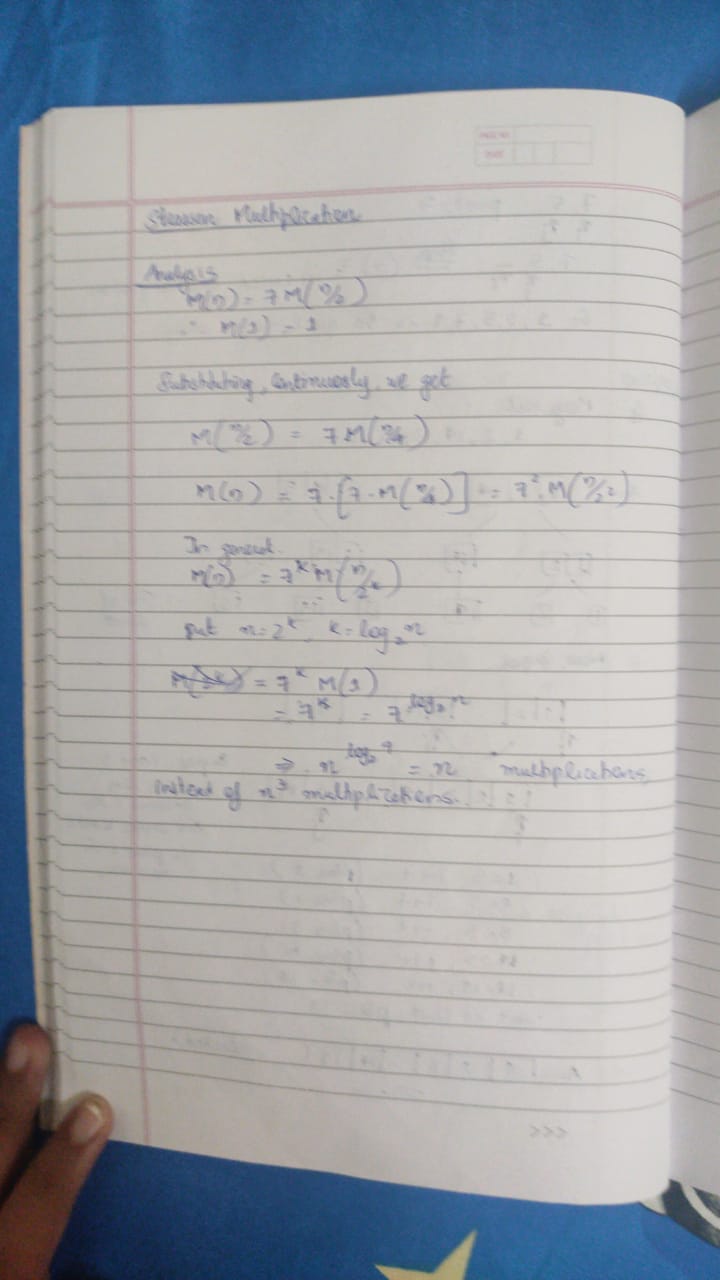 PAGE NO.
DATE
Strassen Multiplication
Analysis
M(n) = 7 M(n/2)
∴ M(1) = 1
Substituting, continuously, we get
M(n/2) = 7 M(n/4)
M(n) = 7·[7·M(n/4)] = 7². M(n/2²)
In general.
M(n) = 7ᵏ M(n/2ᵏ)
put n=2ᵏ, k=log₂n
= 7ᵏ M(1)
= 7ᵏ = 7^log₂n
⇒ n^log₂7 = n multiplications
instead of n³ multiplications.
>>>